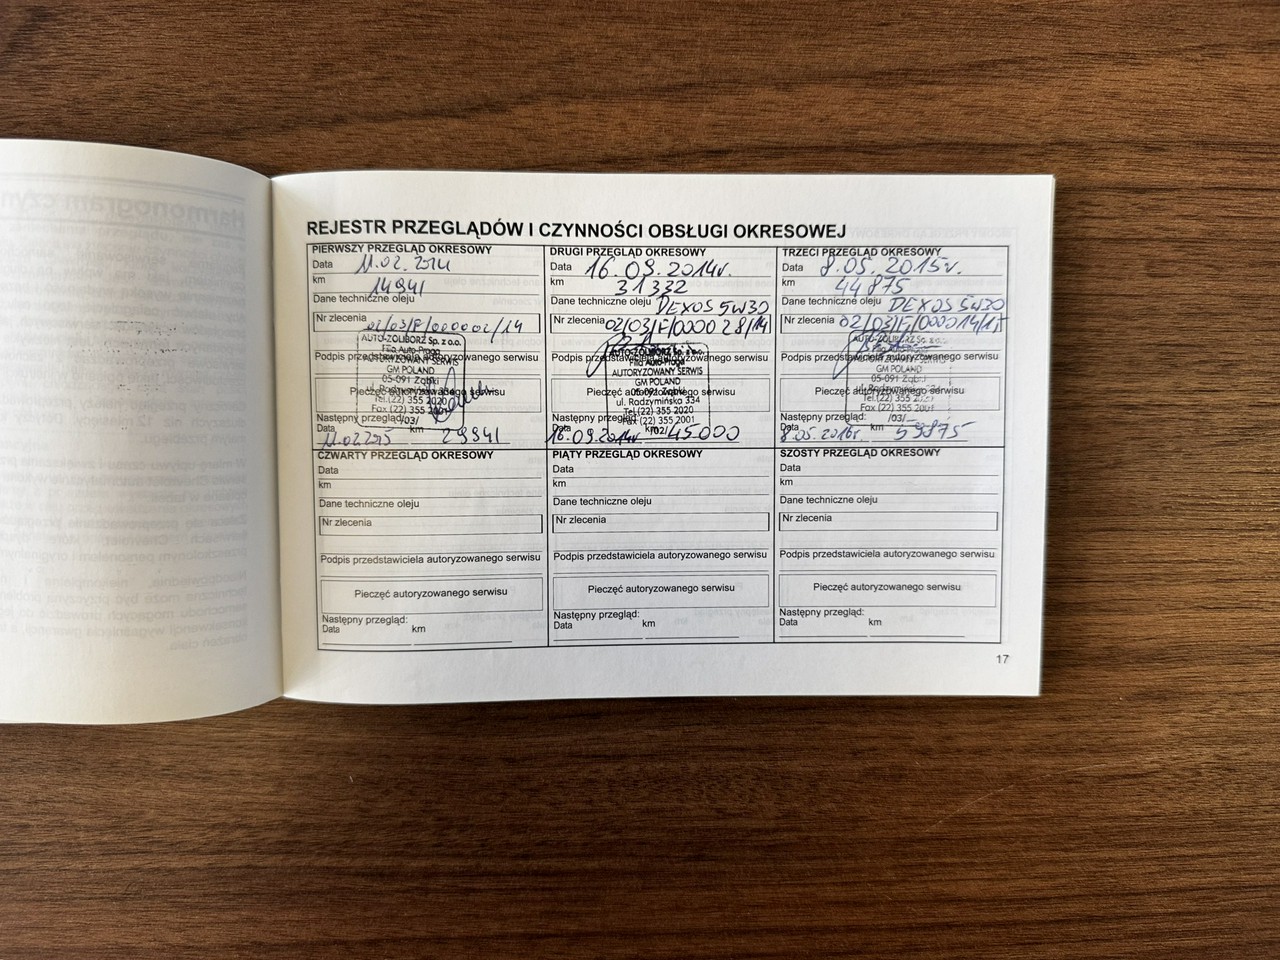 REJESTR PRZEGLĄDÓW I CZYNNOŚCI OBSŁUGI OKRESOWEJ
PIERWSZY PRZEGLĄD OKRESOWY
Data 11.02.2014
km 14941
Dane techniczne oleju
Nr zlecenia 02/03/F/000002/14
AUTO-ŻOLIBORZ Sp. z o.o.
Filia Auto-Praga
Podpis przedstawiciela autoryzowanego serwisu
AUTORYZOWANY SERWIS
GM POLAND
05-091 Ząbki
Pieczęć autoryzowanego serwisu
ul. Radzymińska 334
Tel.(22) 355 2020
Fax (22) 355 2001
/03/
Następny przegląd:
Data 11.02.2015 km 29941
DRUGI PRZEGLĄD OKRESOWY
Data 16.09.2014r.
km 31332
Dane techniczne oleju DEXOS 5W30
Nr zlecenia 02/03/F/000028/14
AUTO-ŻOLIBORZ Sp. z o.o.
Filia Auto-Praga
Podpis przedstawiciela autoryzowanego serwisu
AUTORYZOWANY SERWIS
GM POLAND
05-091 Ząbki
Pieczęć autoryzowanego serwisu
ul. Radzymińska 334
Tel.(22) 355 2020
Fax (22) 355 2001
/02/
Następny przegląd:
Data 16.09.2014r km 45000
TRZECI PRZEGLĄD OKRESOWY
Data 8.05.2015r.
km 44875
Dane techniczne oleju DEXOS 5W30
Nr zlecenia 02/03/F/000014/15
AUTO-ŻOLIBORZ Sp. z o.o.
Podpis przedstawiciela autoryzowanego serwisu
AUTORYZOWANY SERWIS
GM POLAND
05-091 Ząbki
Pieczęć autoryzowanego serwisu
ul. Radzymińska
Tel.(22) 355
Fax (22) 355 2001
/03/
Następny przegląd:
Data 8.05.2016r km 59875
CZWARTY PRZEGLĄD OKRESOWY
Data
km
Dane techniczne oleju
Nr zlecenia
Podpis przedstawiciela autoryzowanego serwisu
Pieczęć autoryzowanego serwisu
Następny przegląd:
Data km
PIĄTY PRZEGLĄD OKRESOWY
Data
km
Dane techniczne oleju
Nr zlecenia
Podpis przedstawiciela autoryzowanego serwisu
Pieczęć autoryzowanego serwisu
Następny przegląd:
Data km
SZÓSTY PRZEGLĄD OKRESOWY
Data
km
Dane techniczne oleju
Nr zlecenia
Podpis przedstawiciela autoryzowanego serwisu
Pieczęć autoryzowanego serwisu
Następny przegląd:
Data km
17